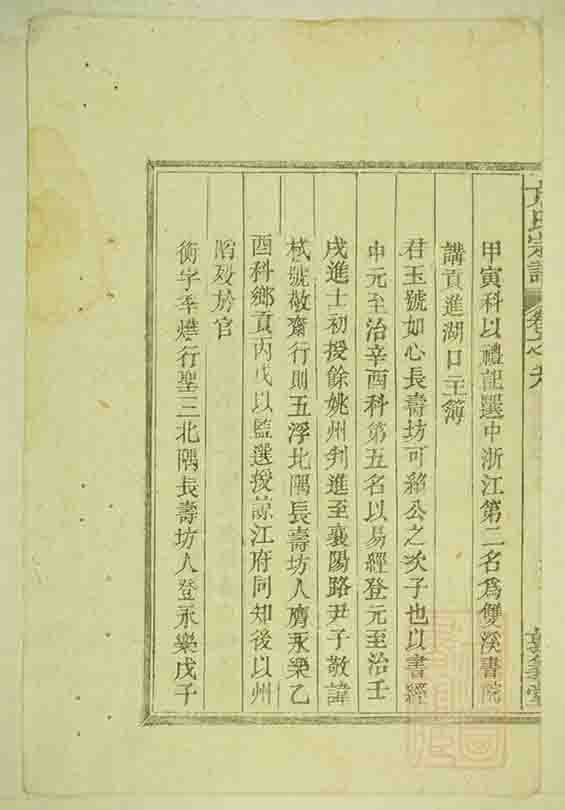 氏宗譜
卷之
甲寅科以禮記選中浙江第二名為雙溪書院
講貢進湖口主簿
君玉號如心長壽坊可紹公之次子也以書經
中元至治辛酉科第五名以易經登元至治壬
戌進士初授餘姚州判進至襄陽路尹子敬諱
栻號敬齋行則五浮北隅長壽坊人膺永樂乙
酉科鄉貢丙戌以監選授諒江府同知後以州
陷歿於官
衡字季燁行聖三北隅長壽坊人登永樂戊子